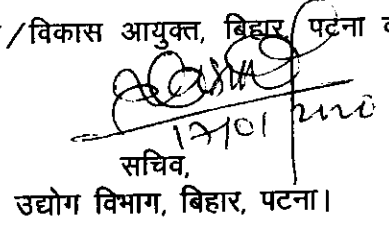 /विकास आयुक्त, बिहार, पटना
सचिव,
उद्योग विभाग, बिहार, पटना।